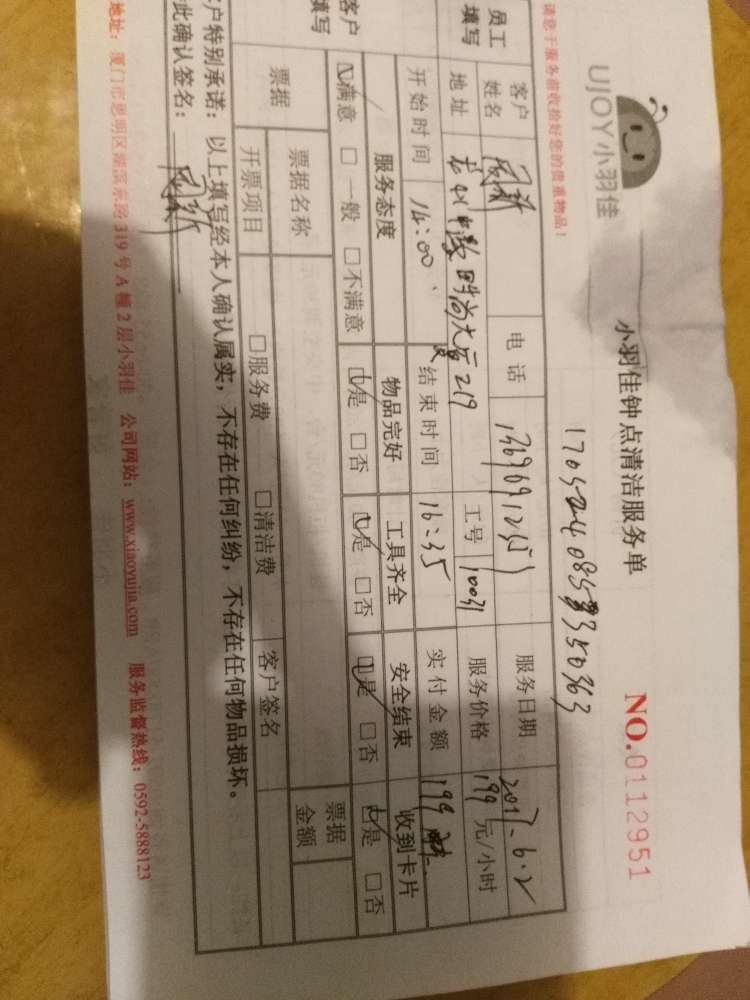 UJOY小羽佳
小羽佳钟点清洁服务单
NO.0112951
请您于服务前收拾好您的贵重物品!
员工填写
客户姓名 电话 服务日期 2017.6.2
地址 219 工号 10031 服务价格 199 元/小时
开始时间 14:00 结束时间 16:35 实付金额 199
客户填写
服务态度 物品完好 工具齐全 安全结束 收到卡片
☑满意 □一般 □不满意 ☑是 □否 ☑是 □否 ☑是 □否 ☑是 □否
票据
票据名称 票据金额
开票项目 □服务费 □清洁费 客户签名
客户特别承诺:以上填写经本人确认属实,不存在任何纠纷,不存在任何物品损坏。
此确认签名:
地址:厦门市思明区 319号A幢2层小羽佳 公司网站:www.xiaoyujia.com 服务监督热线:0592-5888123